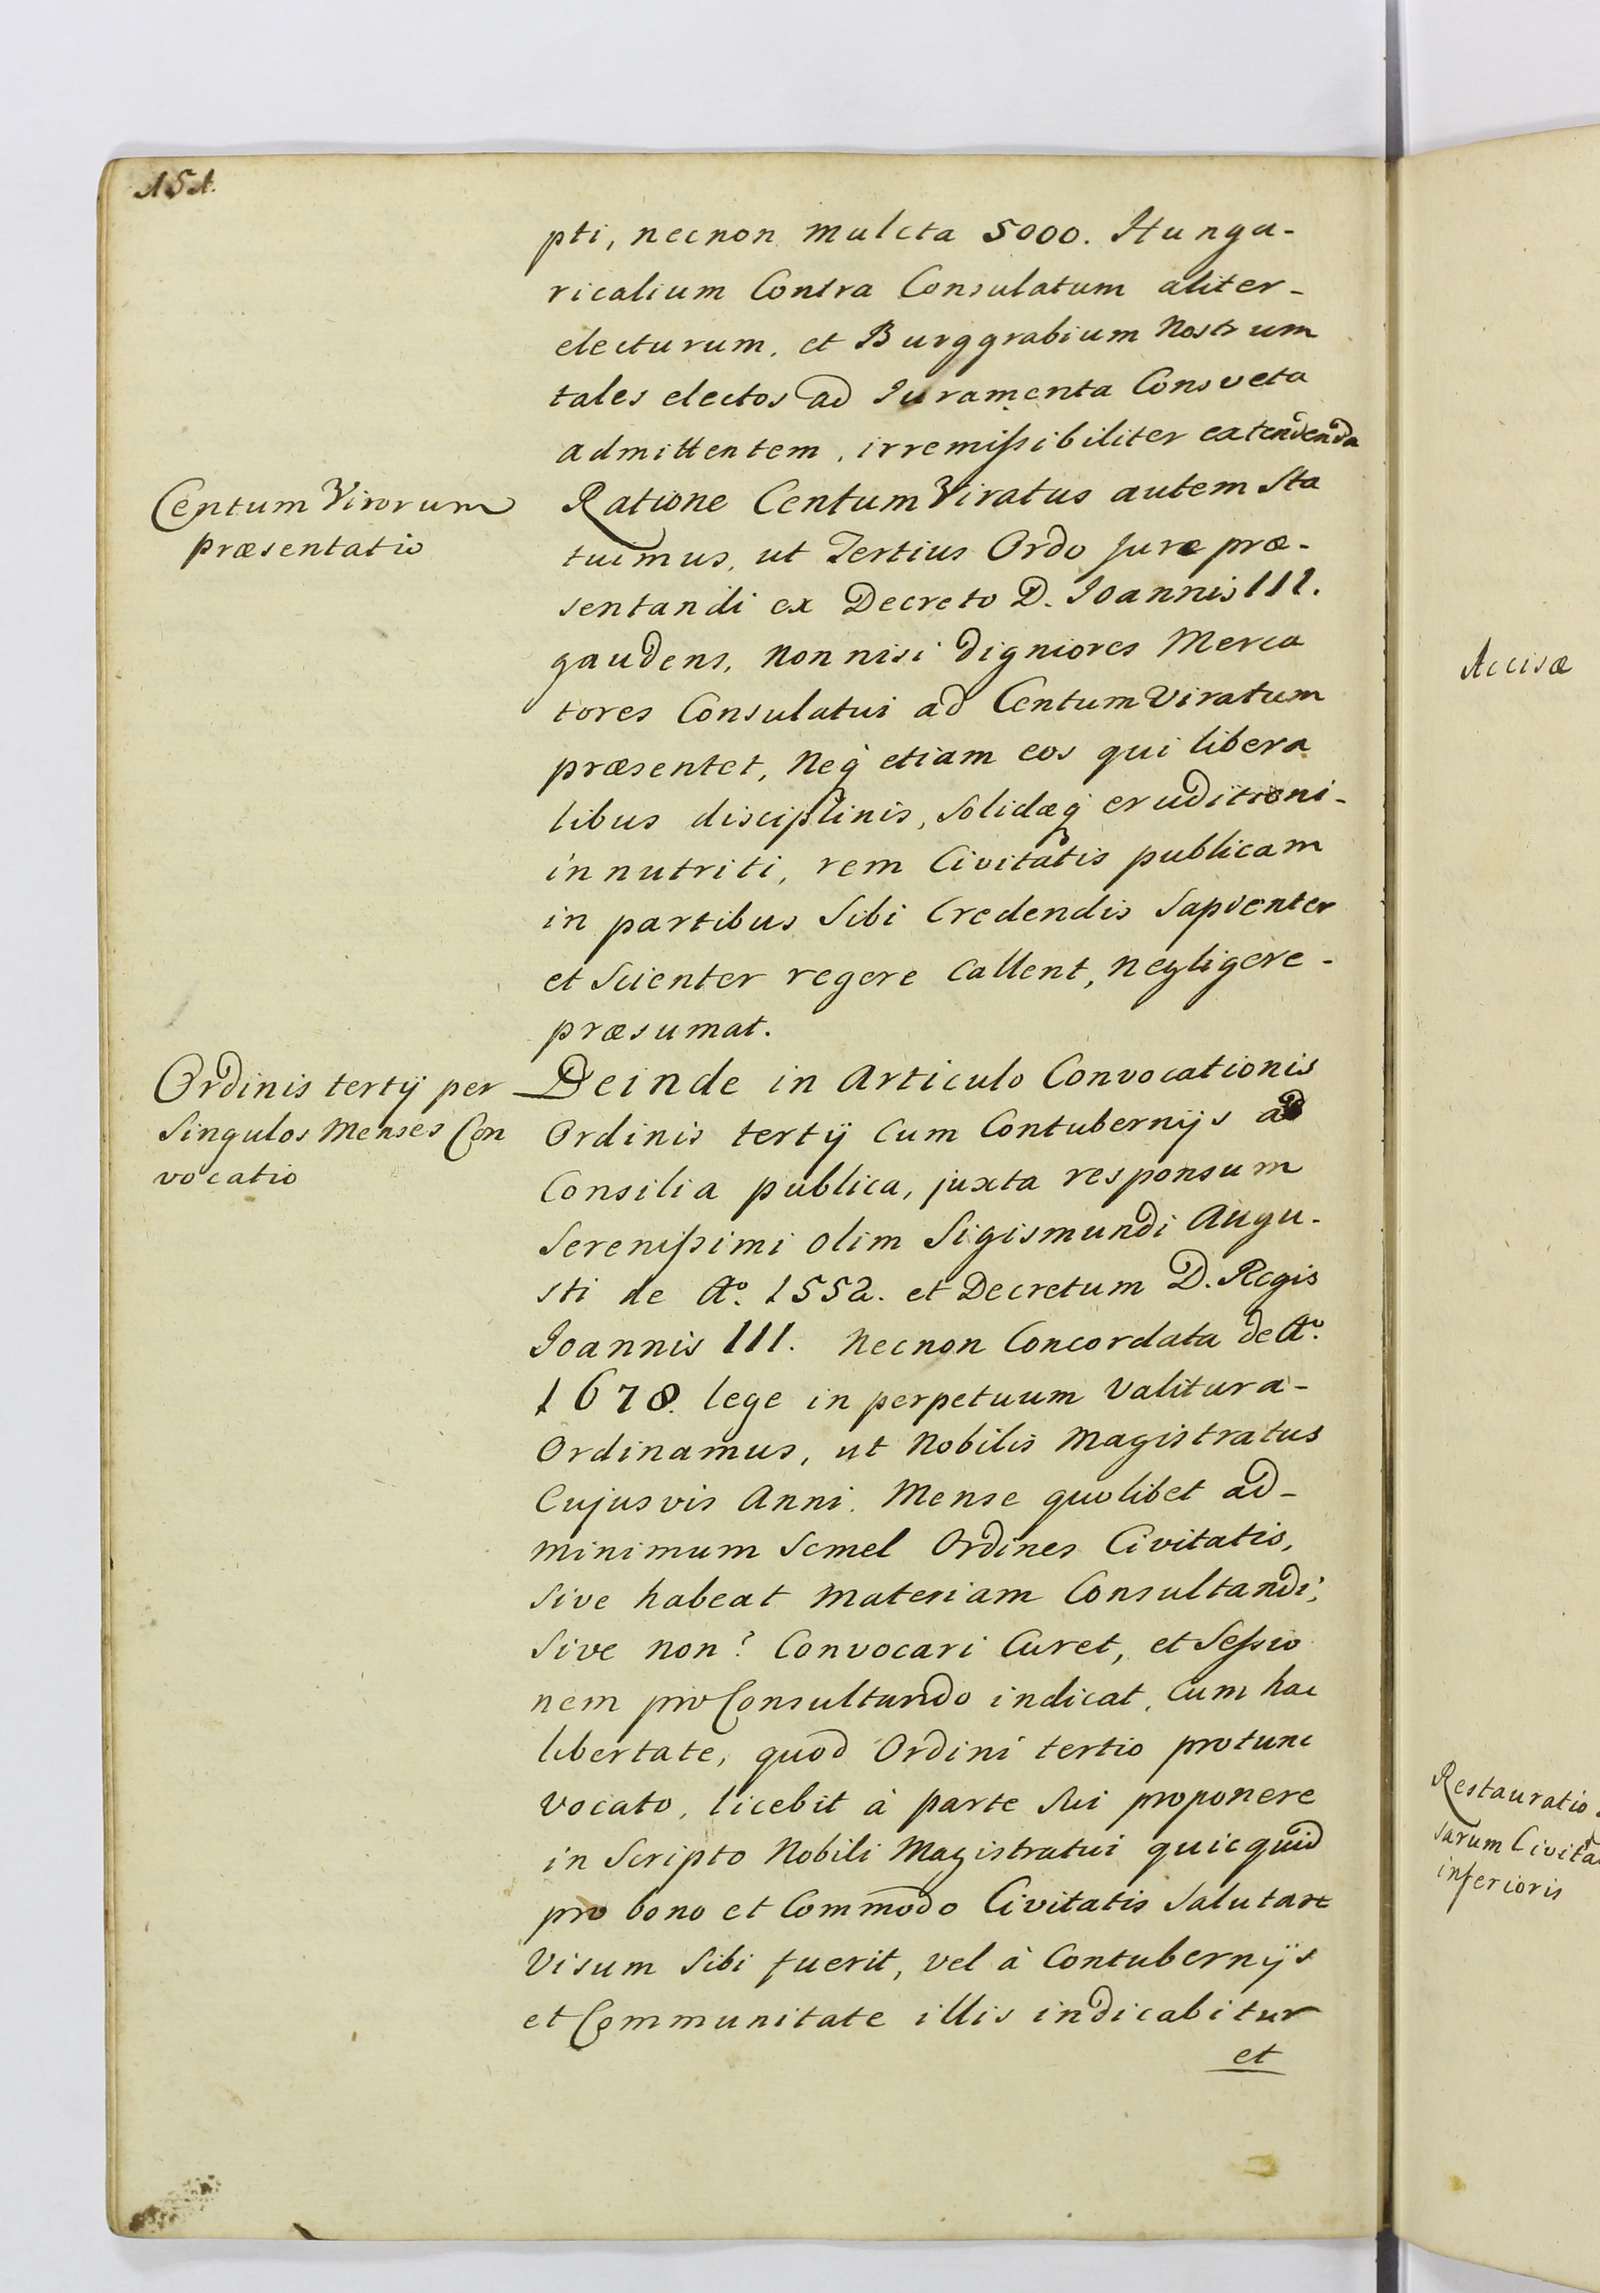 151.
pti, necnon mulcta 5000. Hunga-
ricalium Contra Consulatum aliter-
electurum, et Burggrabium Nostrum
tales electos ad Iuramenta Consveta
admittentem, irremissibiliter extendenda
Centum Virorum
præsentatio
Ratione Centum Viratus autem Sta
tuimus, ut Tertius Ordo jure præ-
sentandi ex Decreto D. Ioannis III.
gaudens, non nisi digniores Merca
tores Consulatui ad Centum Viratum
præsentet, Neq́ etiam eos qui libera
libus disciplinis, Solidæq́ eruditioni-
innutriti, rem Civitatis publicam
in partibus Sibi Credendis Sapienter
et Scienter regere Callent, negligere-
præsumat.
Ordinis tertÿ per
Singulos Menses Con
vocatio
Deinde in Articulo Convocationis
Ordinis tertÿ Cum Contubernÿs ad
Consilia publica, juxta responsum
Serenissimi olim Sigismundi Augu-
sti de Aº. 1552. et Decretum D. Regis
Ioannis III. Necnon Concordata de Aº.
1678. lege in perpetuum Valitura-
Ordinamus, ut Nobilis Magistratus
Cujusvis Anni. Mense quolibet ad-
minimum Semel Ordines Civitatis,
Sive habeat Materiam Consultandi,
Sive non? Convocari Curet, et Sessio
nem pro Consultando indicat, Cum hac
libertate, quod Ordini tertio protunc
Vocato, licebit à parte Sui proponere
in Scripto Nobili Magistratui quicquid
pro bono et Com̄odo Civitatis Salutare
Visum Sibi fuerit, vel à Contubernÿs
et Communitate illis indicabitur
et
Accisæ
Restauratio
sarum Civita
inferioris